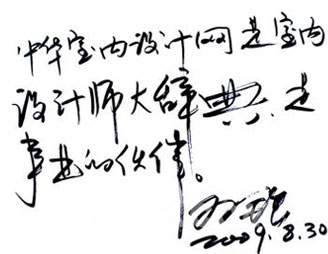 中华室内设计网是室内
设计师大辞典,是
事业的伙伴。
2009.8.30